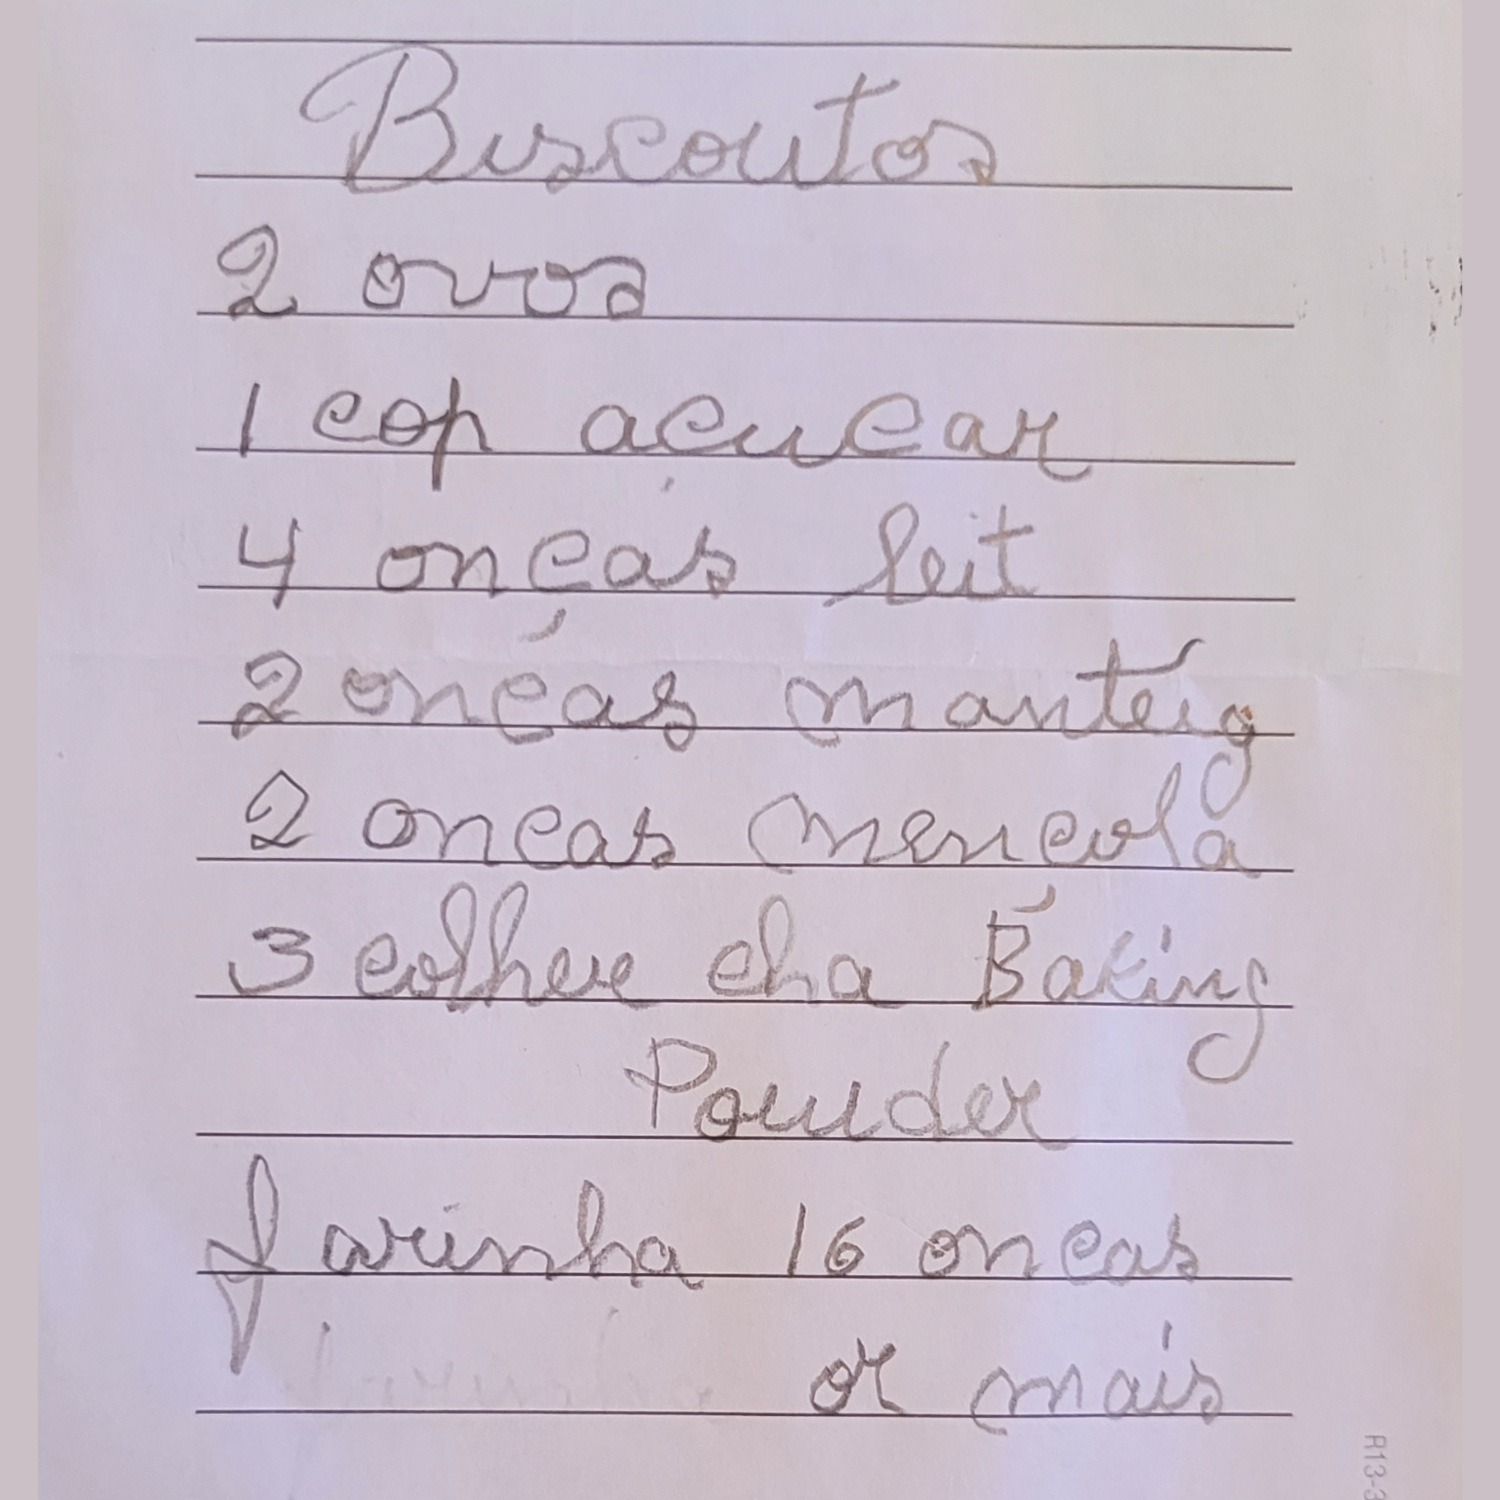 Biscoutos
2 ovos
1 cop acucar
4 onças leit
2 onças manteig
2 oncas mencola
3 colhere cha Baking
Powder
farinha 16 oncas
or mais
R13-3